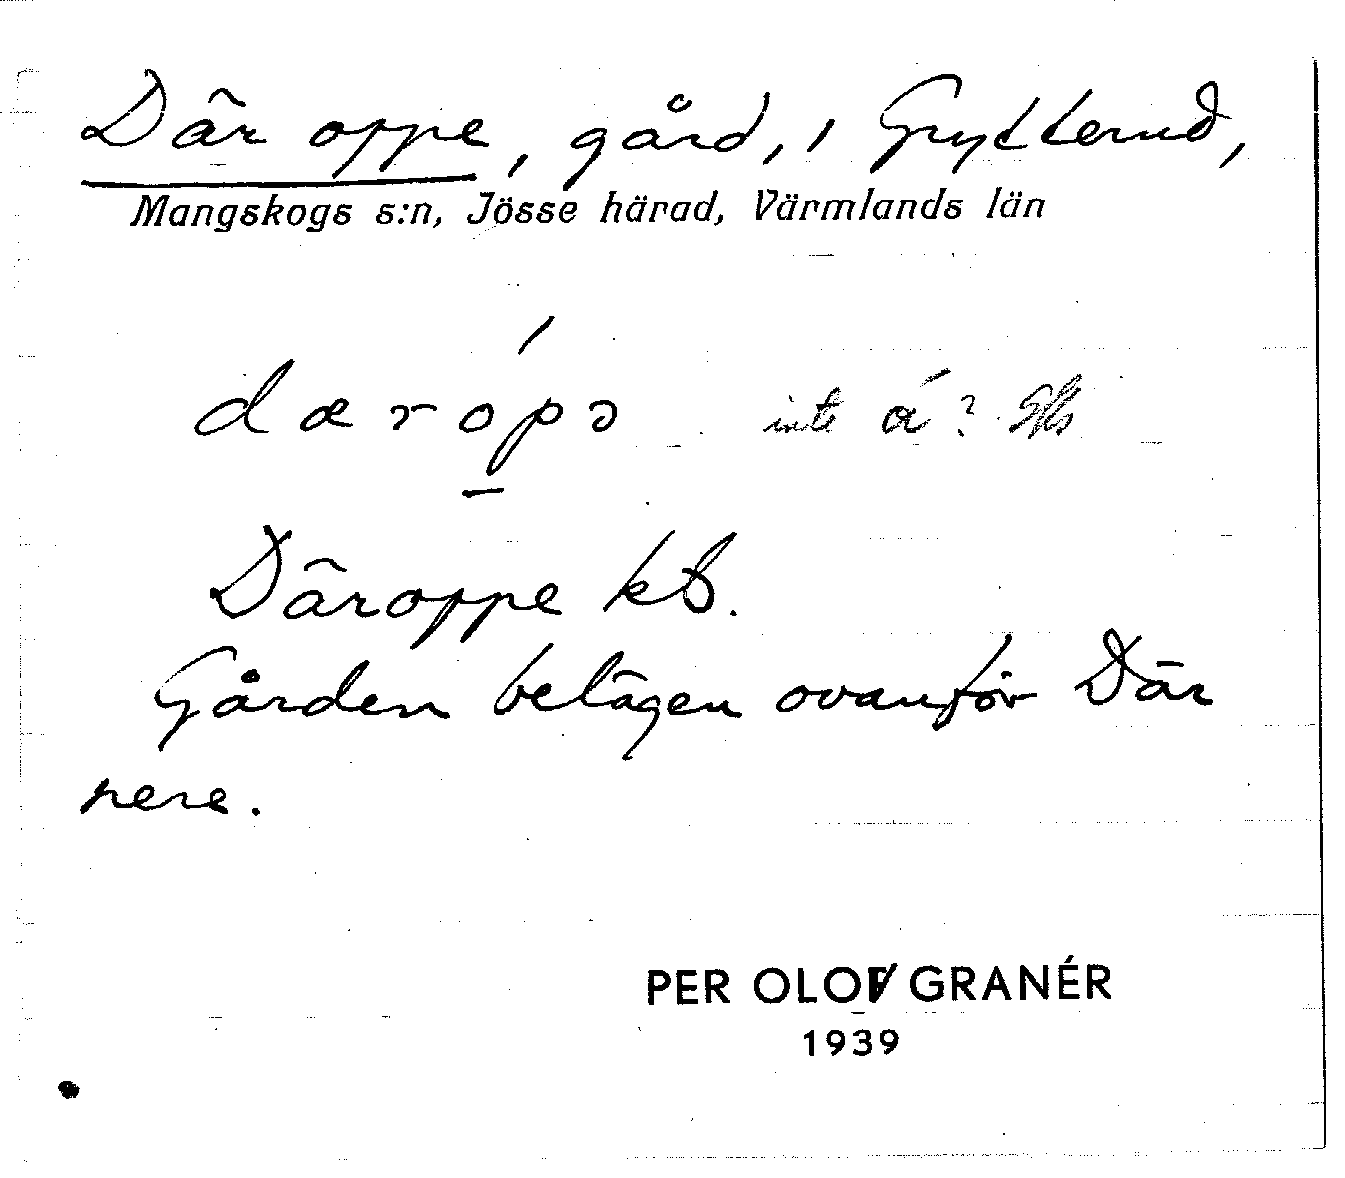 Där oppe, gård, i Grytterud,
Mangskogs s:n, Jösse härad, Värmlands län
dærópə inte á?
Däroppe kb.
Gården belägen ovanför Där
nere.
PER OLOF GRANÉR
1939